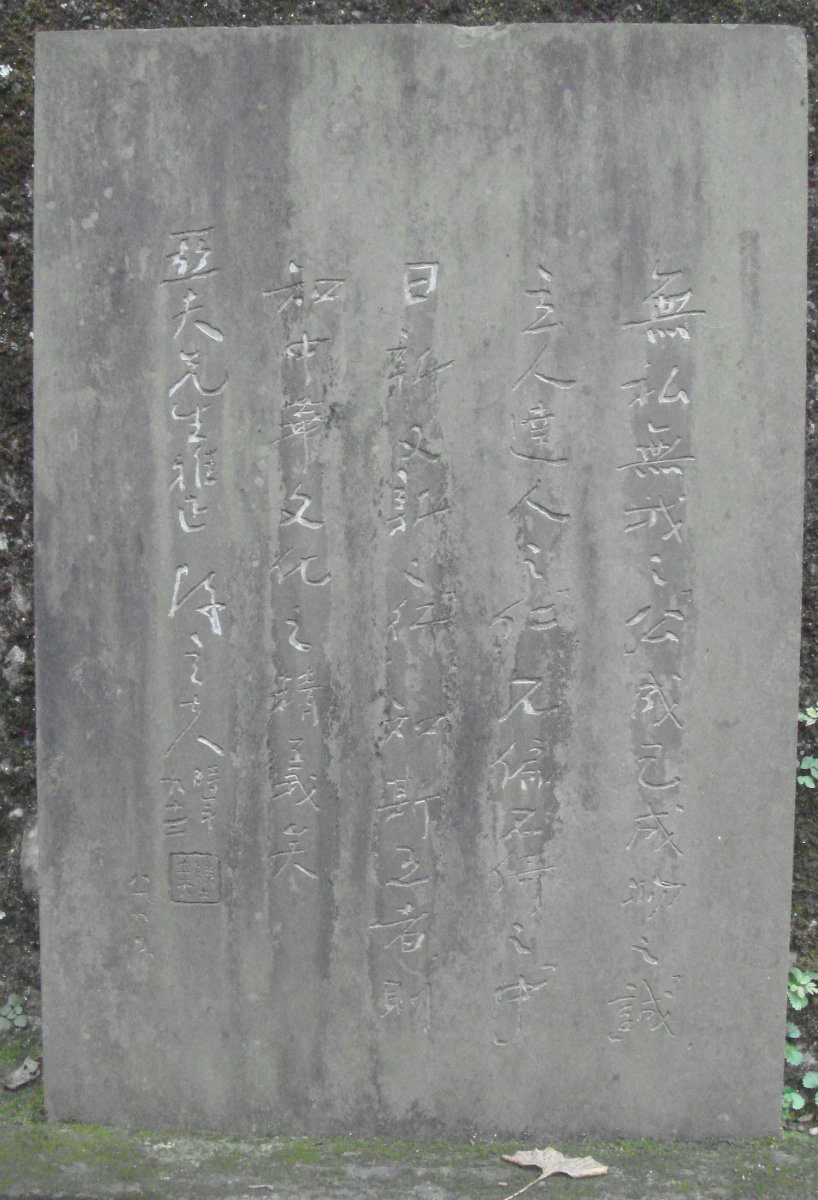 無私無我之「公」成己成物之「誠」
立人達人之「仁」不偏不倚之「中」
日新又新之「行」知斯五者則
知中華文化之精義矣
亞夫先生雅正 陳立夫 時年九十三